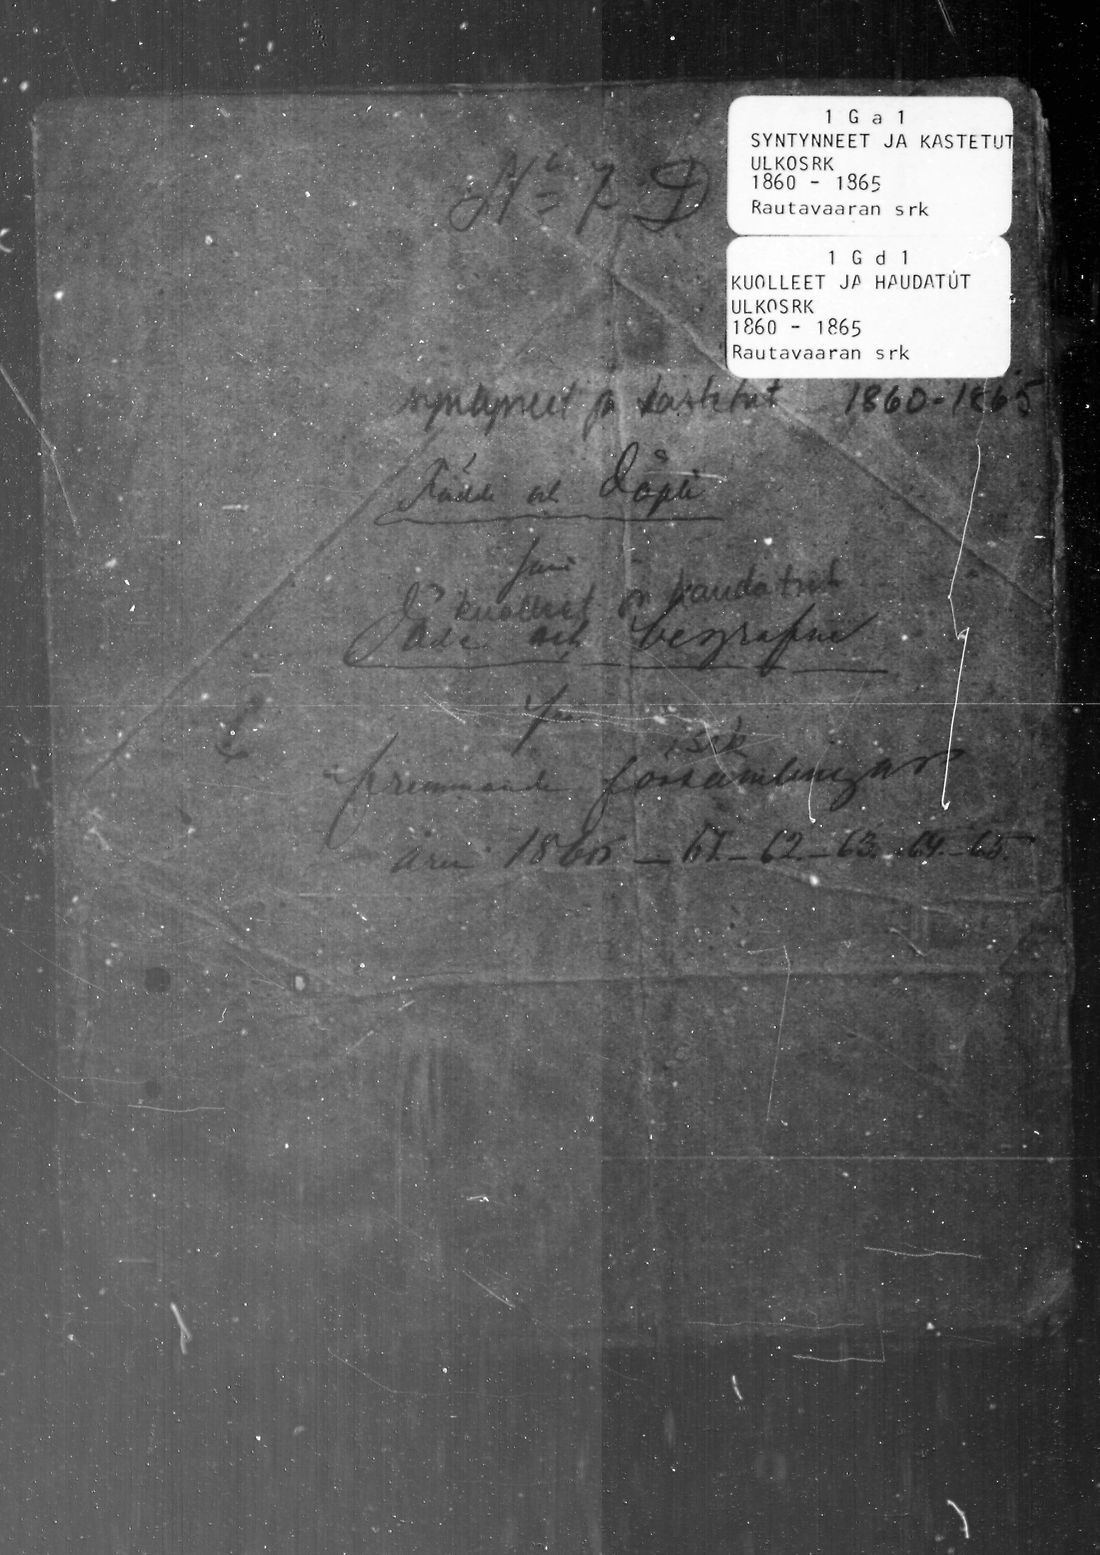 1 G a 1
SYNTYNNEET JA KASTETUT
ULKOSRK
1860 - 1865
Rautavaaran srk
1 G d 1
KUOLLEET JA HAUDATUT
ULKOSRK
1860 - 1865
Rautavaaran srk
syntyneet ja kastetut 1860-1865
Födde och Döpte
kuolleet ja haudatut
Döde och begrafne
främmande församlingar
åren 1860 - 61 - 62 - 63 - 64 - 65.